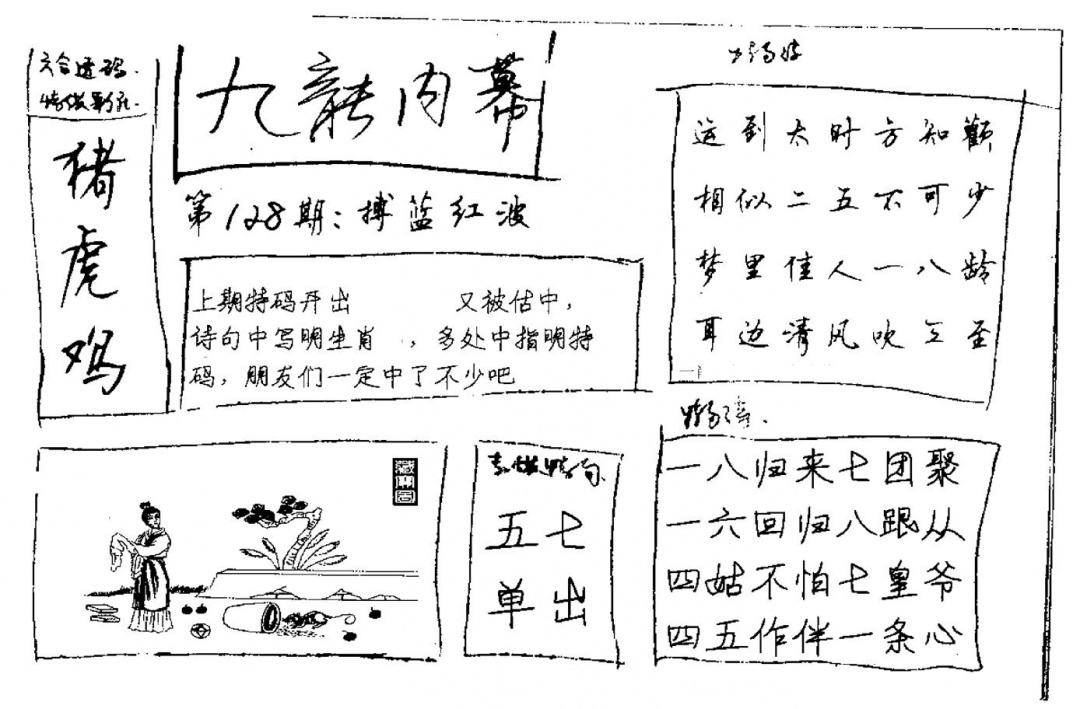 六合透码
猪
虎
鸡
九龍内幕
第128期：搏蓝红波
上期特码开出 又被估中，
诗句中写明生肖 ，多处中指明特
码，朋友们一定中了不少吧
运到太时方知顴
相似二五不可少
梦里佳人一八龄
耳边清风吹至
五七
单出
一八归来七团聚
一六回归八跟从
四姑不怕七皇爷
四五作伴一条心